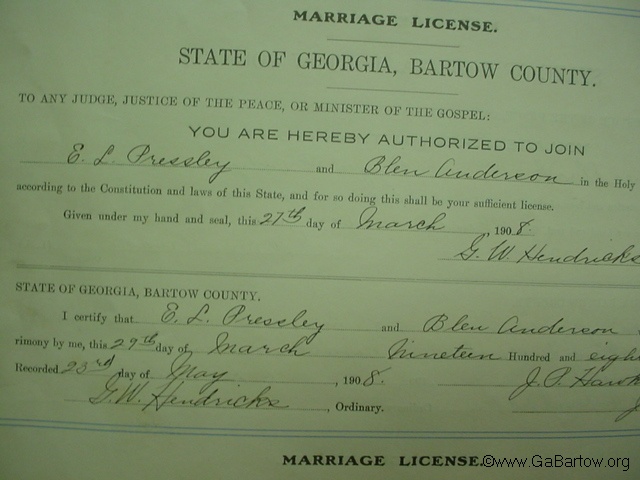 MARRIAGE LICENSE.
STATE OF GEORGIA, BARTOW COUNTY.
TO ANY JUDGE, JUSTICE OF THE PEACE, OR MINISTER OF THE GOSPEL:
YOU ARE HEREBY AUTHORIZED TO JOIN
E. L. Pressley and Blen Anderson in the Holy
according to the Constitution and laws of this State, and for so doing this shall be your sufficient license.
Given under my hand and seal, this 27th day of March 1908.
G. W. Hendricks
STATE OF GEORGIA, BARTOW COUNTY.
I certify that E. L. Pressley and Blen Anderson
rimony by me, this 29th day of March Nineteen Hundred and eigh
Recorded 23rd day of May, 1908. J. P.
G. W. Hendricks, Ordinary.
MARRIAGE LICENSE.
©www.GaBartow.org